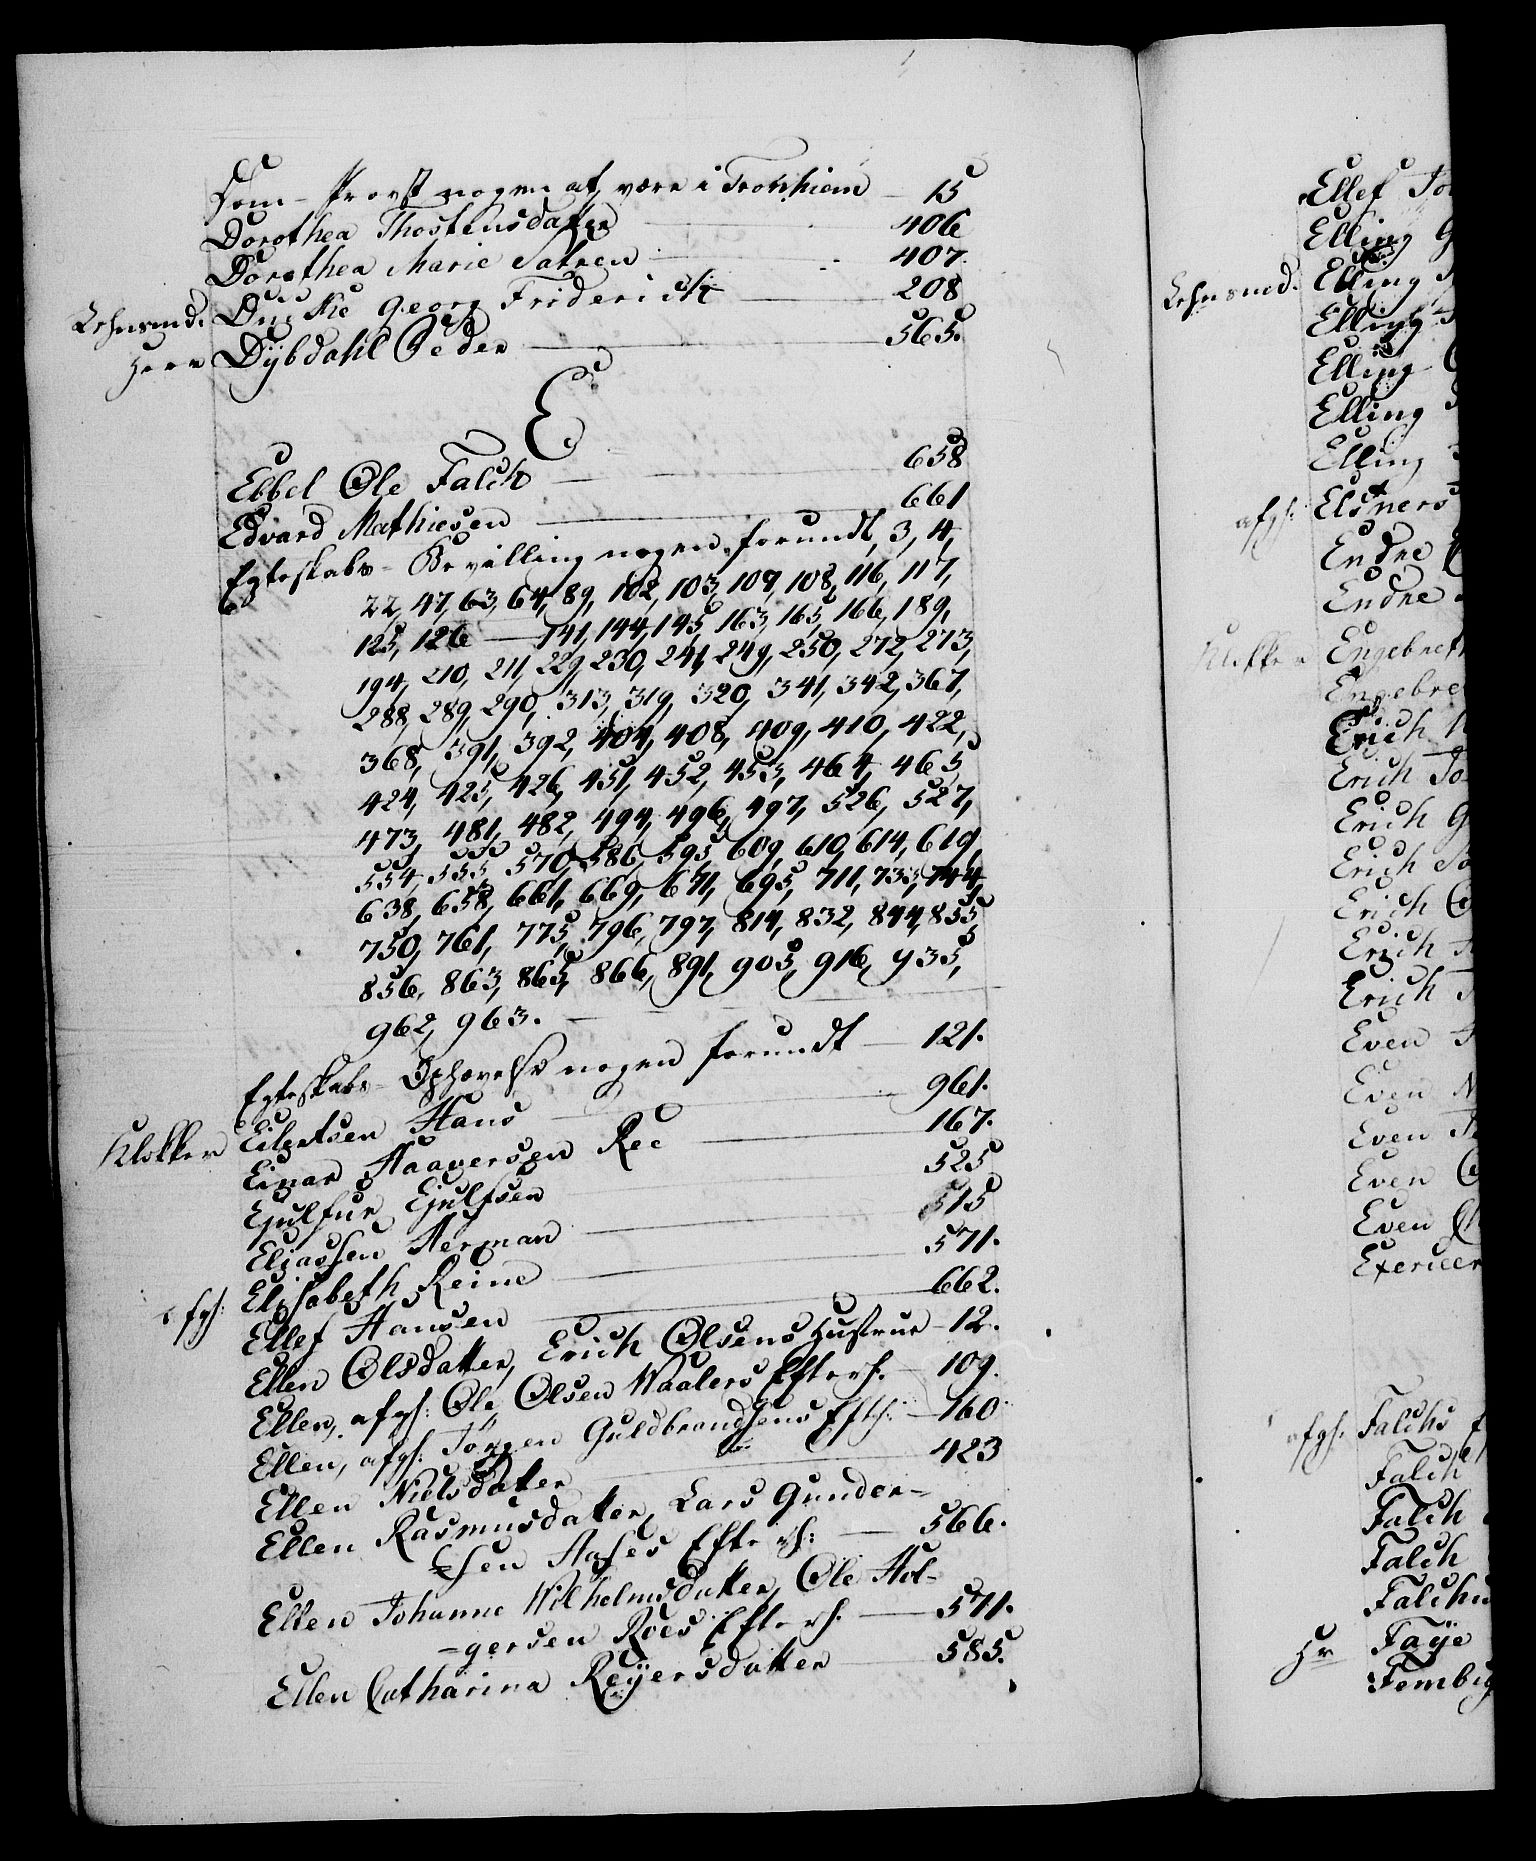 Dom-Provst nogen at være i Tronhiem — 15
Dorothea Thostensdatter — 406
Dorothea Marie Satren — 407.
Lehnsmd. Ducke Georg Friderich — 208
Herr Dÿbdahl Peder — 565.
E
Ebbel Ole Falch — 658
Edvard Mathiesen — 661
Egteskabs-Bevilling nogen forundt, 3, 4,
22, 47, 63, 64, 89, 102, 103, 107, 108, 116, 117,
125, 126 — 141, 144, 145, 163, 165, 166, 189,
194, 210, 211, 229, 230, 241, 249, 250, 272, 273,
288, 289, 290, 313, 319, 320, 341, 342, 367,
368, 391, 392, 404, 408, 409, 410, 422,
424, 425, 426, 451, 452, 453, 464, 465,
473, 481, 482, 494, 496, 497, 526, 527,
554, 555, 570, 586, 595, 609, 610, 614, 619,
638, 658, 661, 669, 671, 695, 711, 733, 744,
750, 761, 775, 796, 797, 814, 832, 844, 855,
856, 863, 865, 866, 891, 905, 916, 935,
962, 963. —
Egteskabs-Ophævelse nogen forundt — 121.
Eilertsen Hans — 961.
Klokker Einar Haaversen Ree — 167.
Ejulfur Ejulfsen — 525
Eliassen Herman — 515
Elisabeth Reine — 571.
afgl. Ellef Hansen — 662.
Ellen Olsdatter, Erich Olsens Hustrue — 12.
Ellen, afgl: Ole Olsen Waalers Efterl. — 109.
Ellen, afgl. Jörgen Guldbrandsens Eftl: — 160
Ellen Nielsdatter — 423
Ellen Rasmusdatter, Lars Gunder-
sen Aases Efterl: — 566.
Ellen Johanne Wilhelmsdatter, Ole Hol-
-gersen Roes Efterl. — 571.
Ellen Catharina Reÿersdatter — 585.
Ellef
Elling
Lehnsmd. Elling
Elling
Elling
Elling
Elling
afgl: Elsners
Endre
Endre
Klokker
Erich
Erich
Erich
Erich
Erich
Erich
Erich
Even
Even
Even
Even
Even
afgl. Falchs
Falch
Falch
Falch
Hr Faÿe